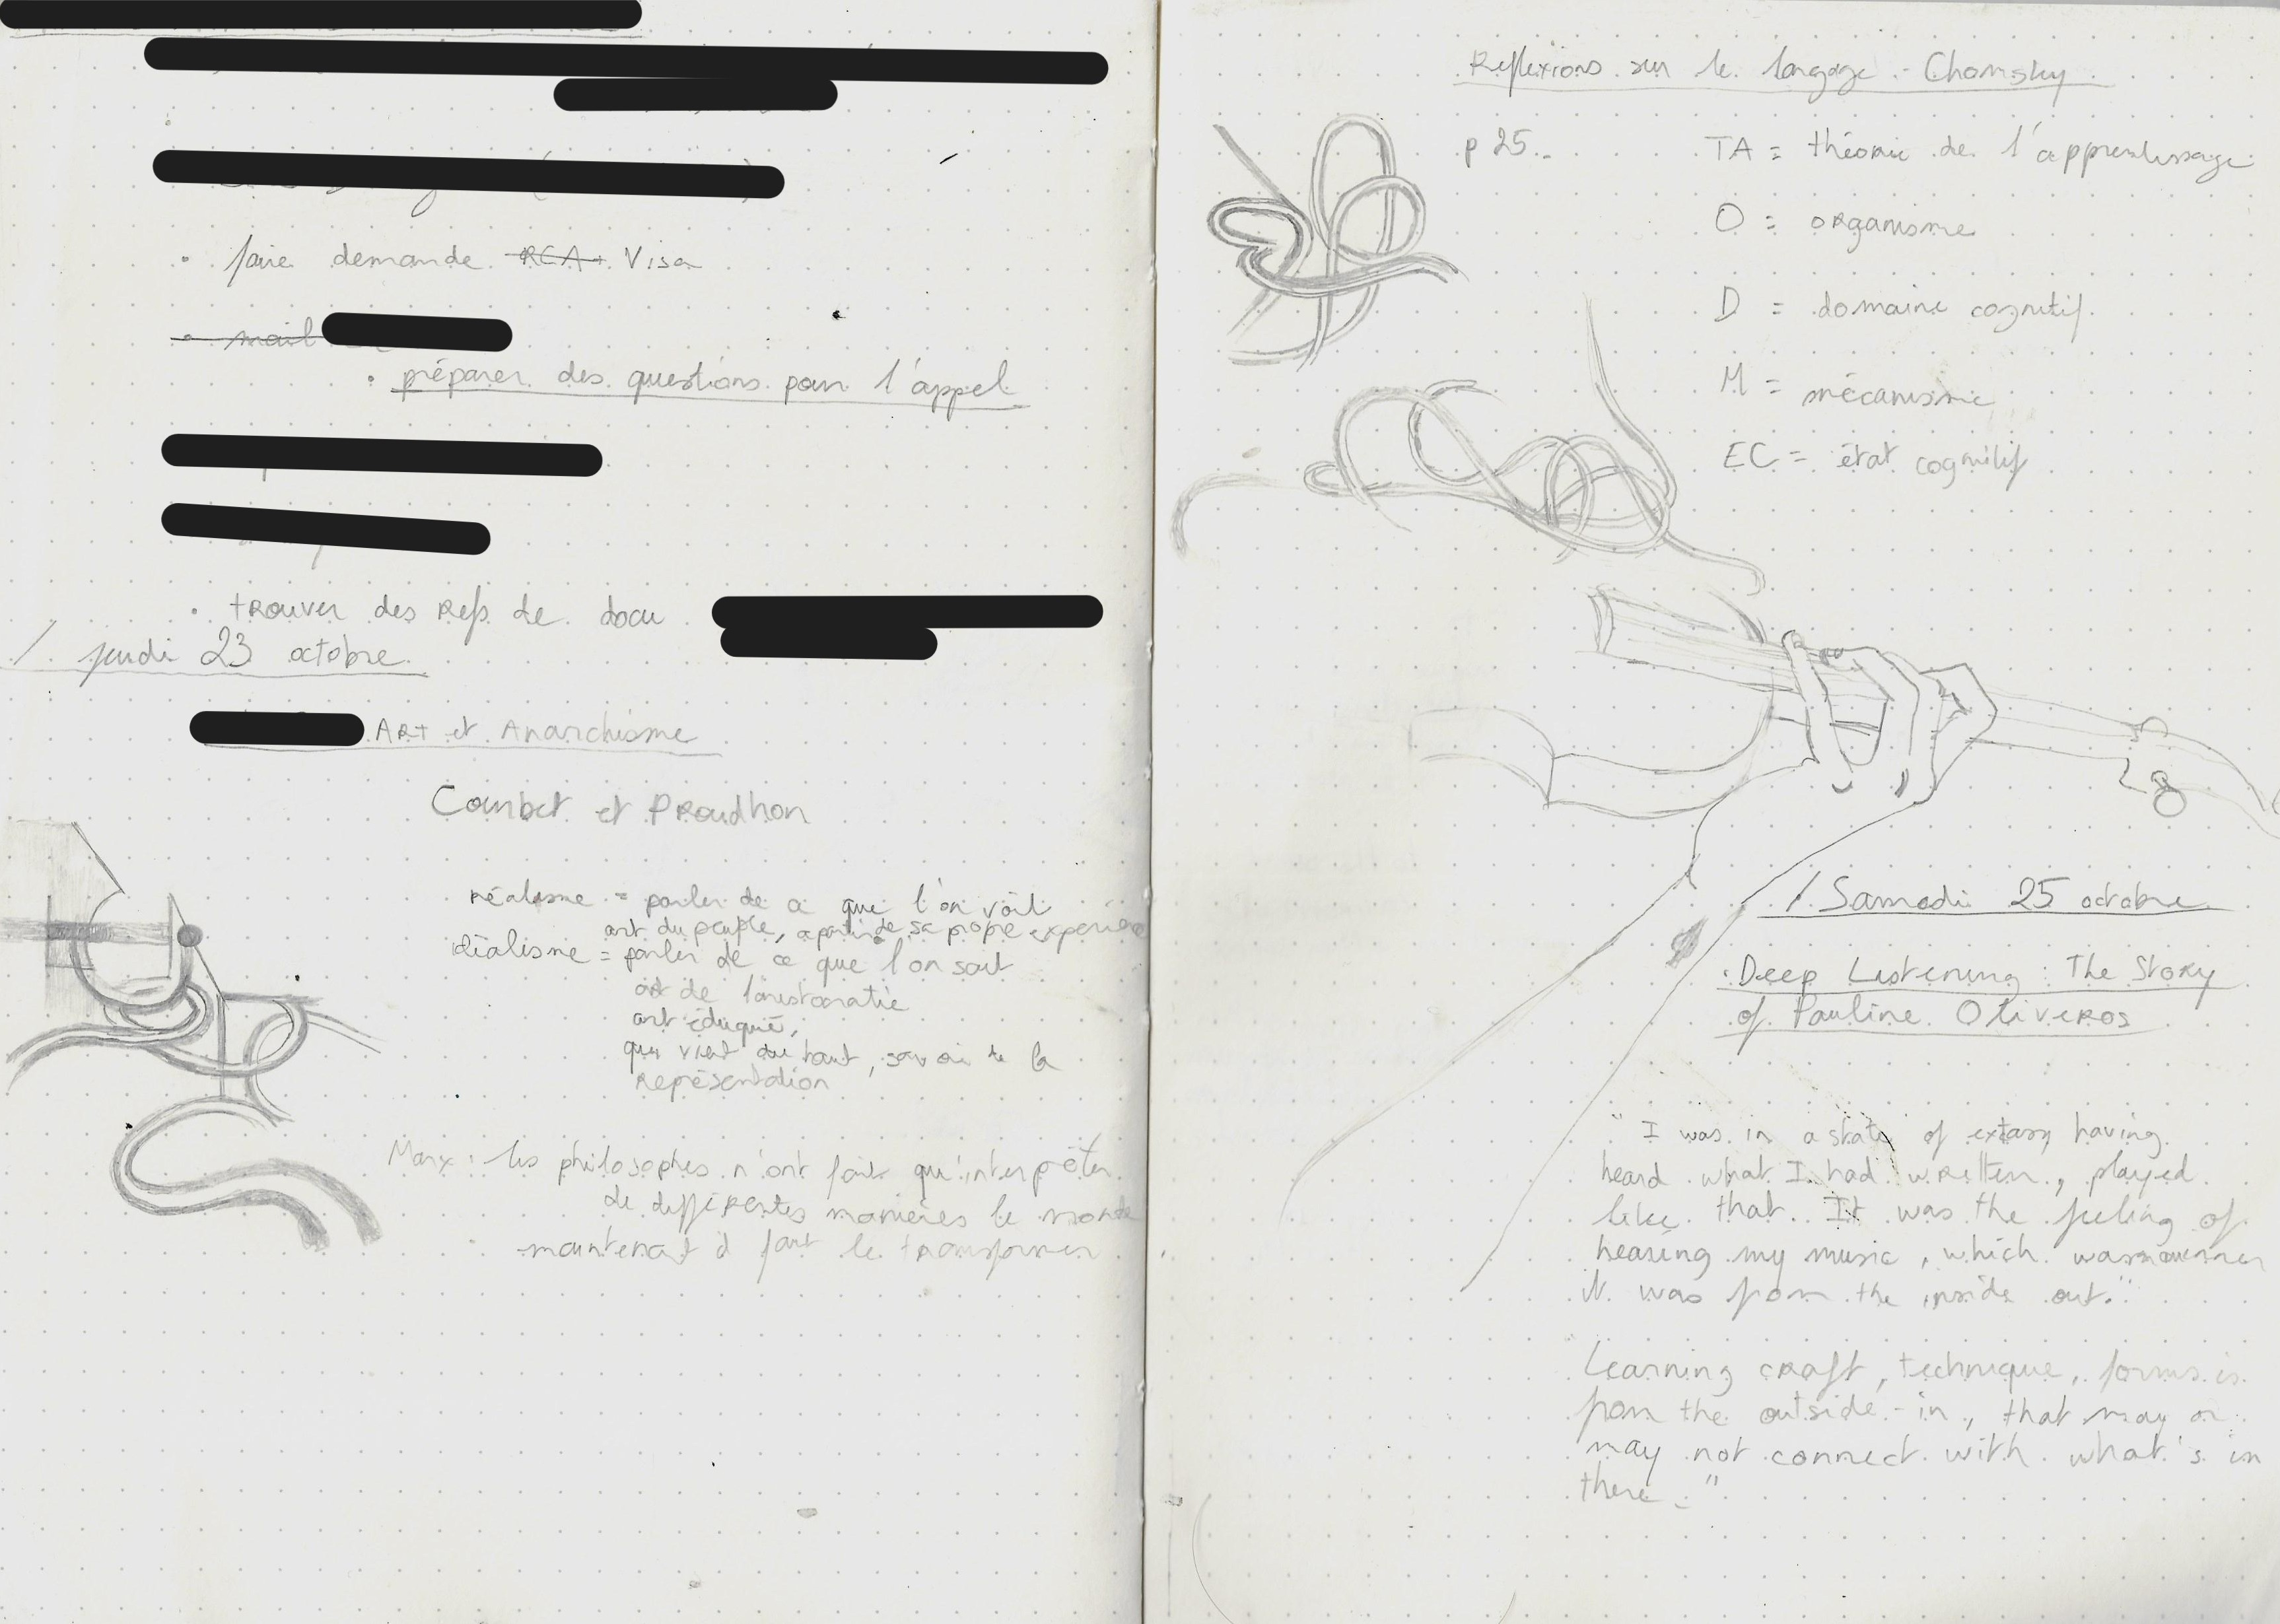 • faire demande RCA + Visa
• mail
• préparer des questions pour l'appel
• trouver des refs de docu
/ jeudi 23 octobre
Art et Anarchisme
Courbet et Proudhon
réalisme = parler de ce que l'on voit
art du peuple, a partir de sa propre experience
idéalisme = parler de ce que l'on sait
art de l'aristocratie
art éduqué,
qui vient du haut, savoir de la
représentation
Marx : les philosophes n'ont fait qu'interpréter
de différentes manières le monde
maintenant il faut le transformer
Reflexions sur le langage - Chomsky
p 25.
TA = théorie de l'apprentissage
O = organisme
D = domaine cognitif
M = mécanisme
EC = état cognitif
/ Samedi 25 octobre
• Deep Listening : The Story
of Pauline Oliveros
" I was in a state of extasy having
heard what I had written, played
like that. It was the feeling of
hearing my music, which was
it was from the inside out."
Learning craft, technique, forms is
from the outside-in, that may or
may not connect with what's in
there. "